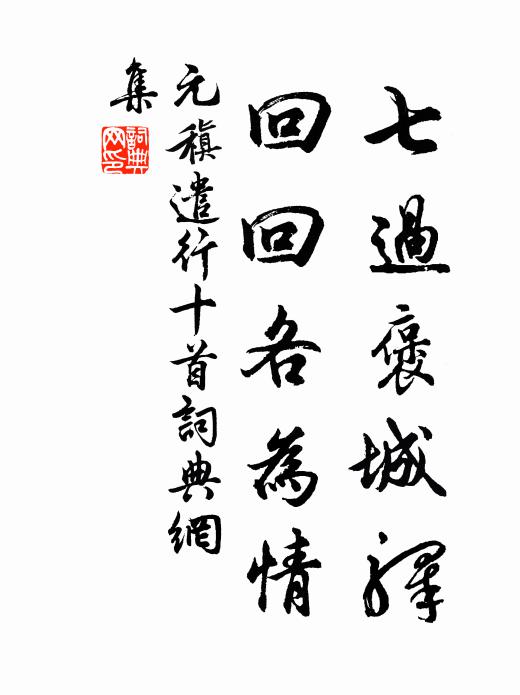 七過褒城驛
回回各為情
元稹遣行十首詞典網
集
詞典網印